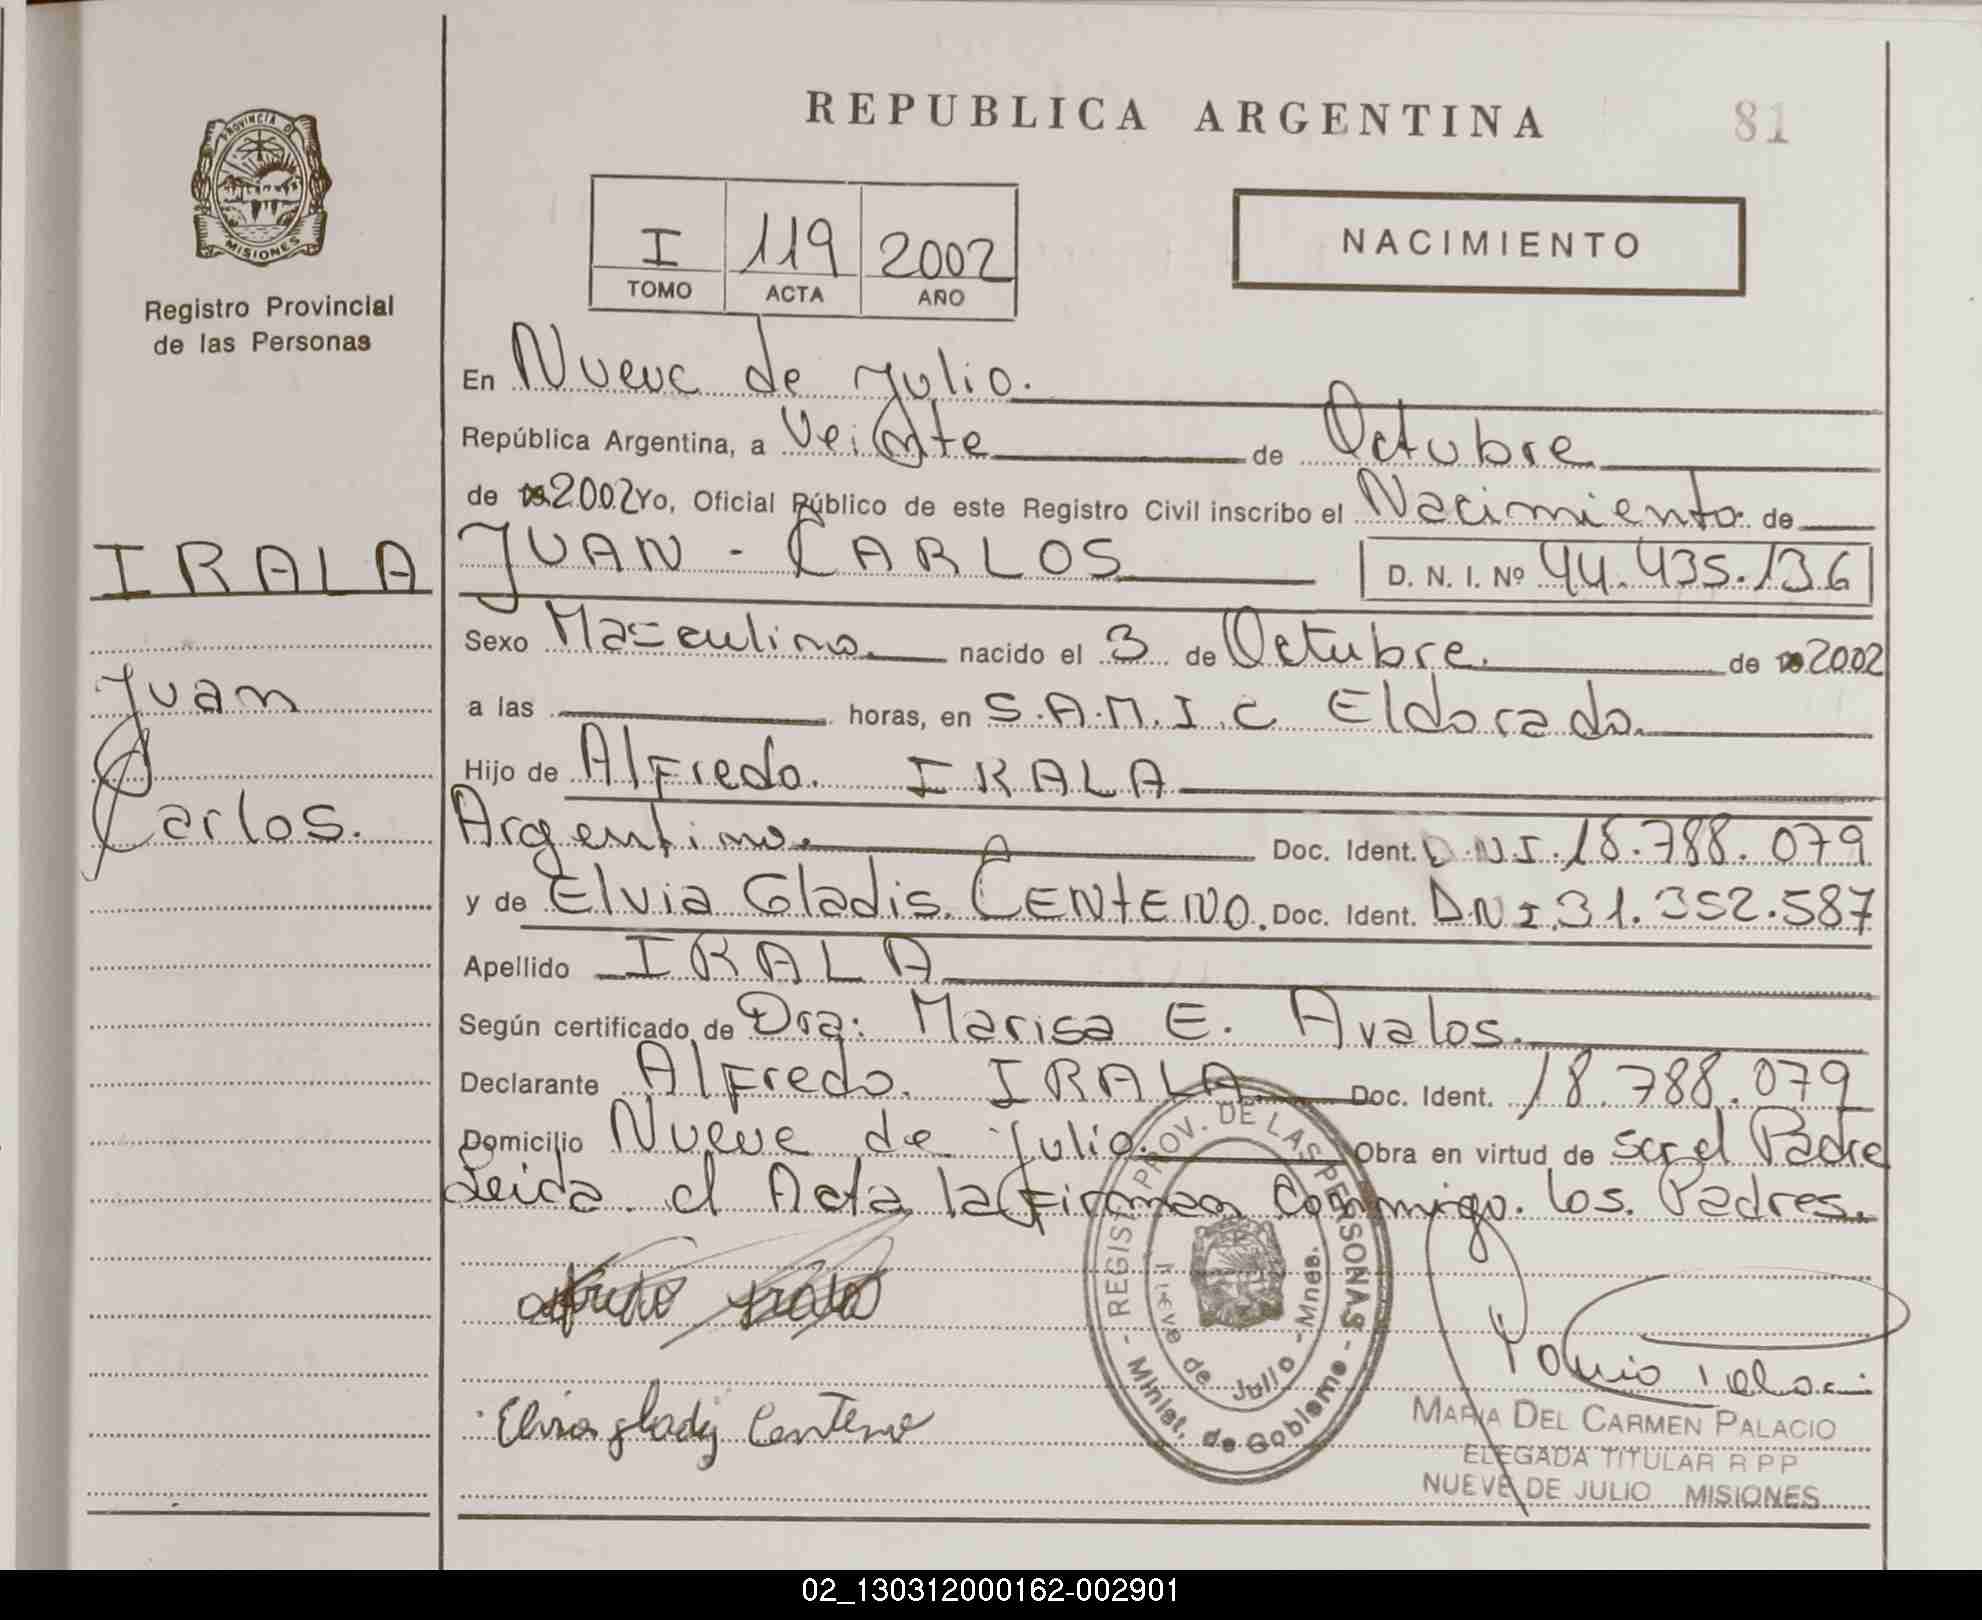 REPUBLICA ARGENTINA
81
PROVINCIA D
MISIONES
Registro Provincial
de las Personas
I 119 2002
TOMO ACTA AÑO
NACIMIENTO
En Nueve de Julio.
República Argentina, a Veinte de Octubre
de 2002 Yo, Oficial Público de este Registro Civil inscribo el Nacimiento de
IRALA
JUAN - CARLOS D. N. I. Nº 44.435.136
Sexo Masculino nacido el 3 de Octubre de 2002
Juan
a las horas, en S.A.M.I.C Eldorado.
Hijo de Alfredo. IRALA
Carlos.
Argentino. Doc. Ident. D.N.I. 18.788.079
y de Elvia Gladis. CENTENO. Doc. Ident. D.N.I. 31.352.587
Apellido IRALA
Según certificado de Dra: Marisa E. Avalos.
Declarante Alfredo. IRALA Doc. Ident. 18.788.079
Domicilio Nueve de Julio. Obra en virtud de ser el Padre
Leida el Acta la Firman Conmigo. los. Padres.
REGIST PROV. DE LAS PERSONAS - Minist. de Gobierno -
Nueve de Julio - Mnes.
Elvia glady Centeno
MARIA DEL CARMEN PALACIO
ELEGADA TITULAR R P P
NUEVE DE JULIO MISIONES
02_130312000162-002901